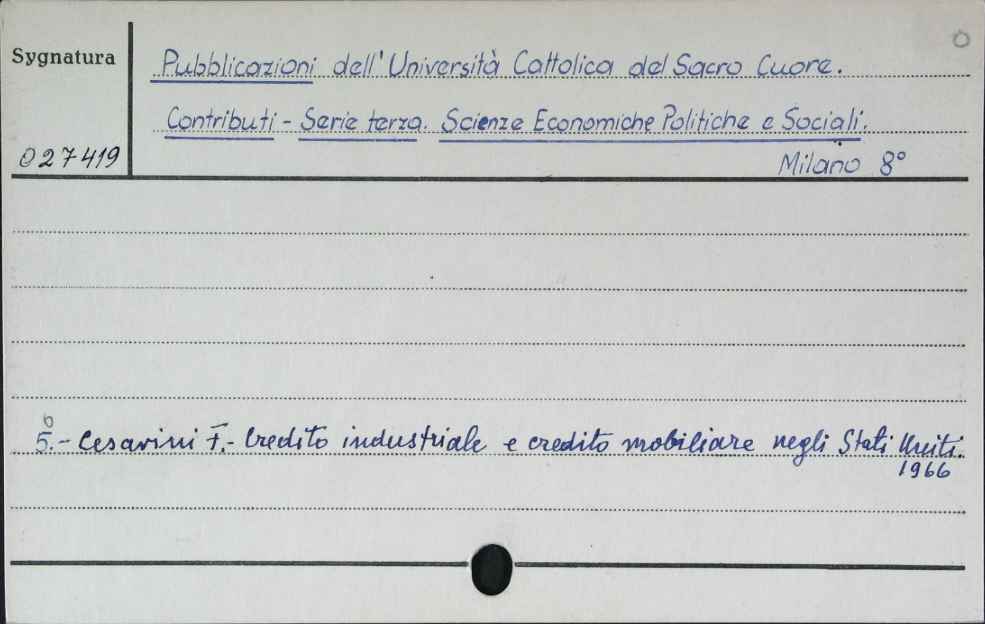 0
Sygnatura
Pubblicazioni dell' Università Cattolica del Sacro Cuore.
Contributi - Serie terza. Scienze Economiche Politiche e Sociali.
027419
Milano 8°
6
5.- Cesarini F.- Credito industriale e credito mobiliare negli Stati Uniti.
1966